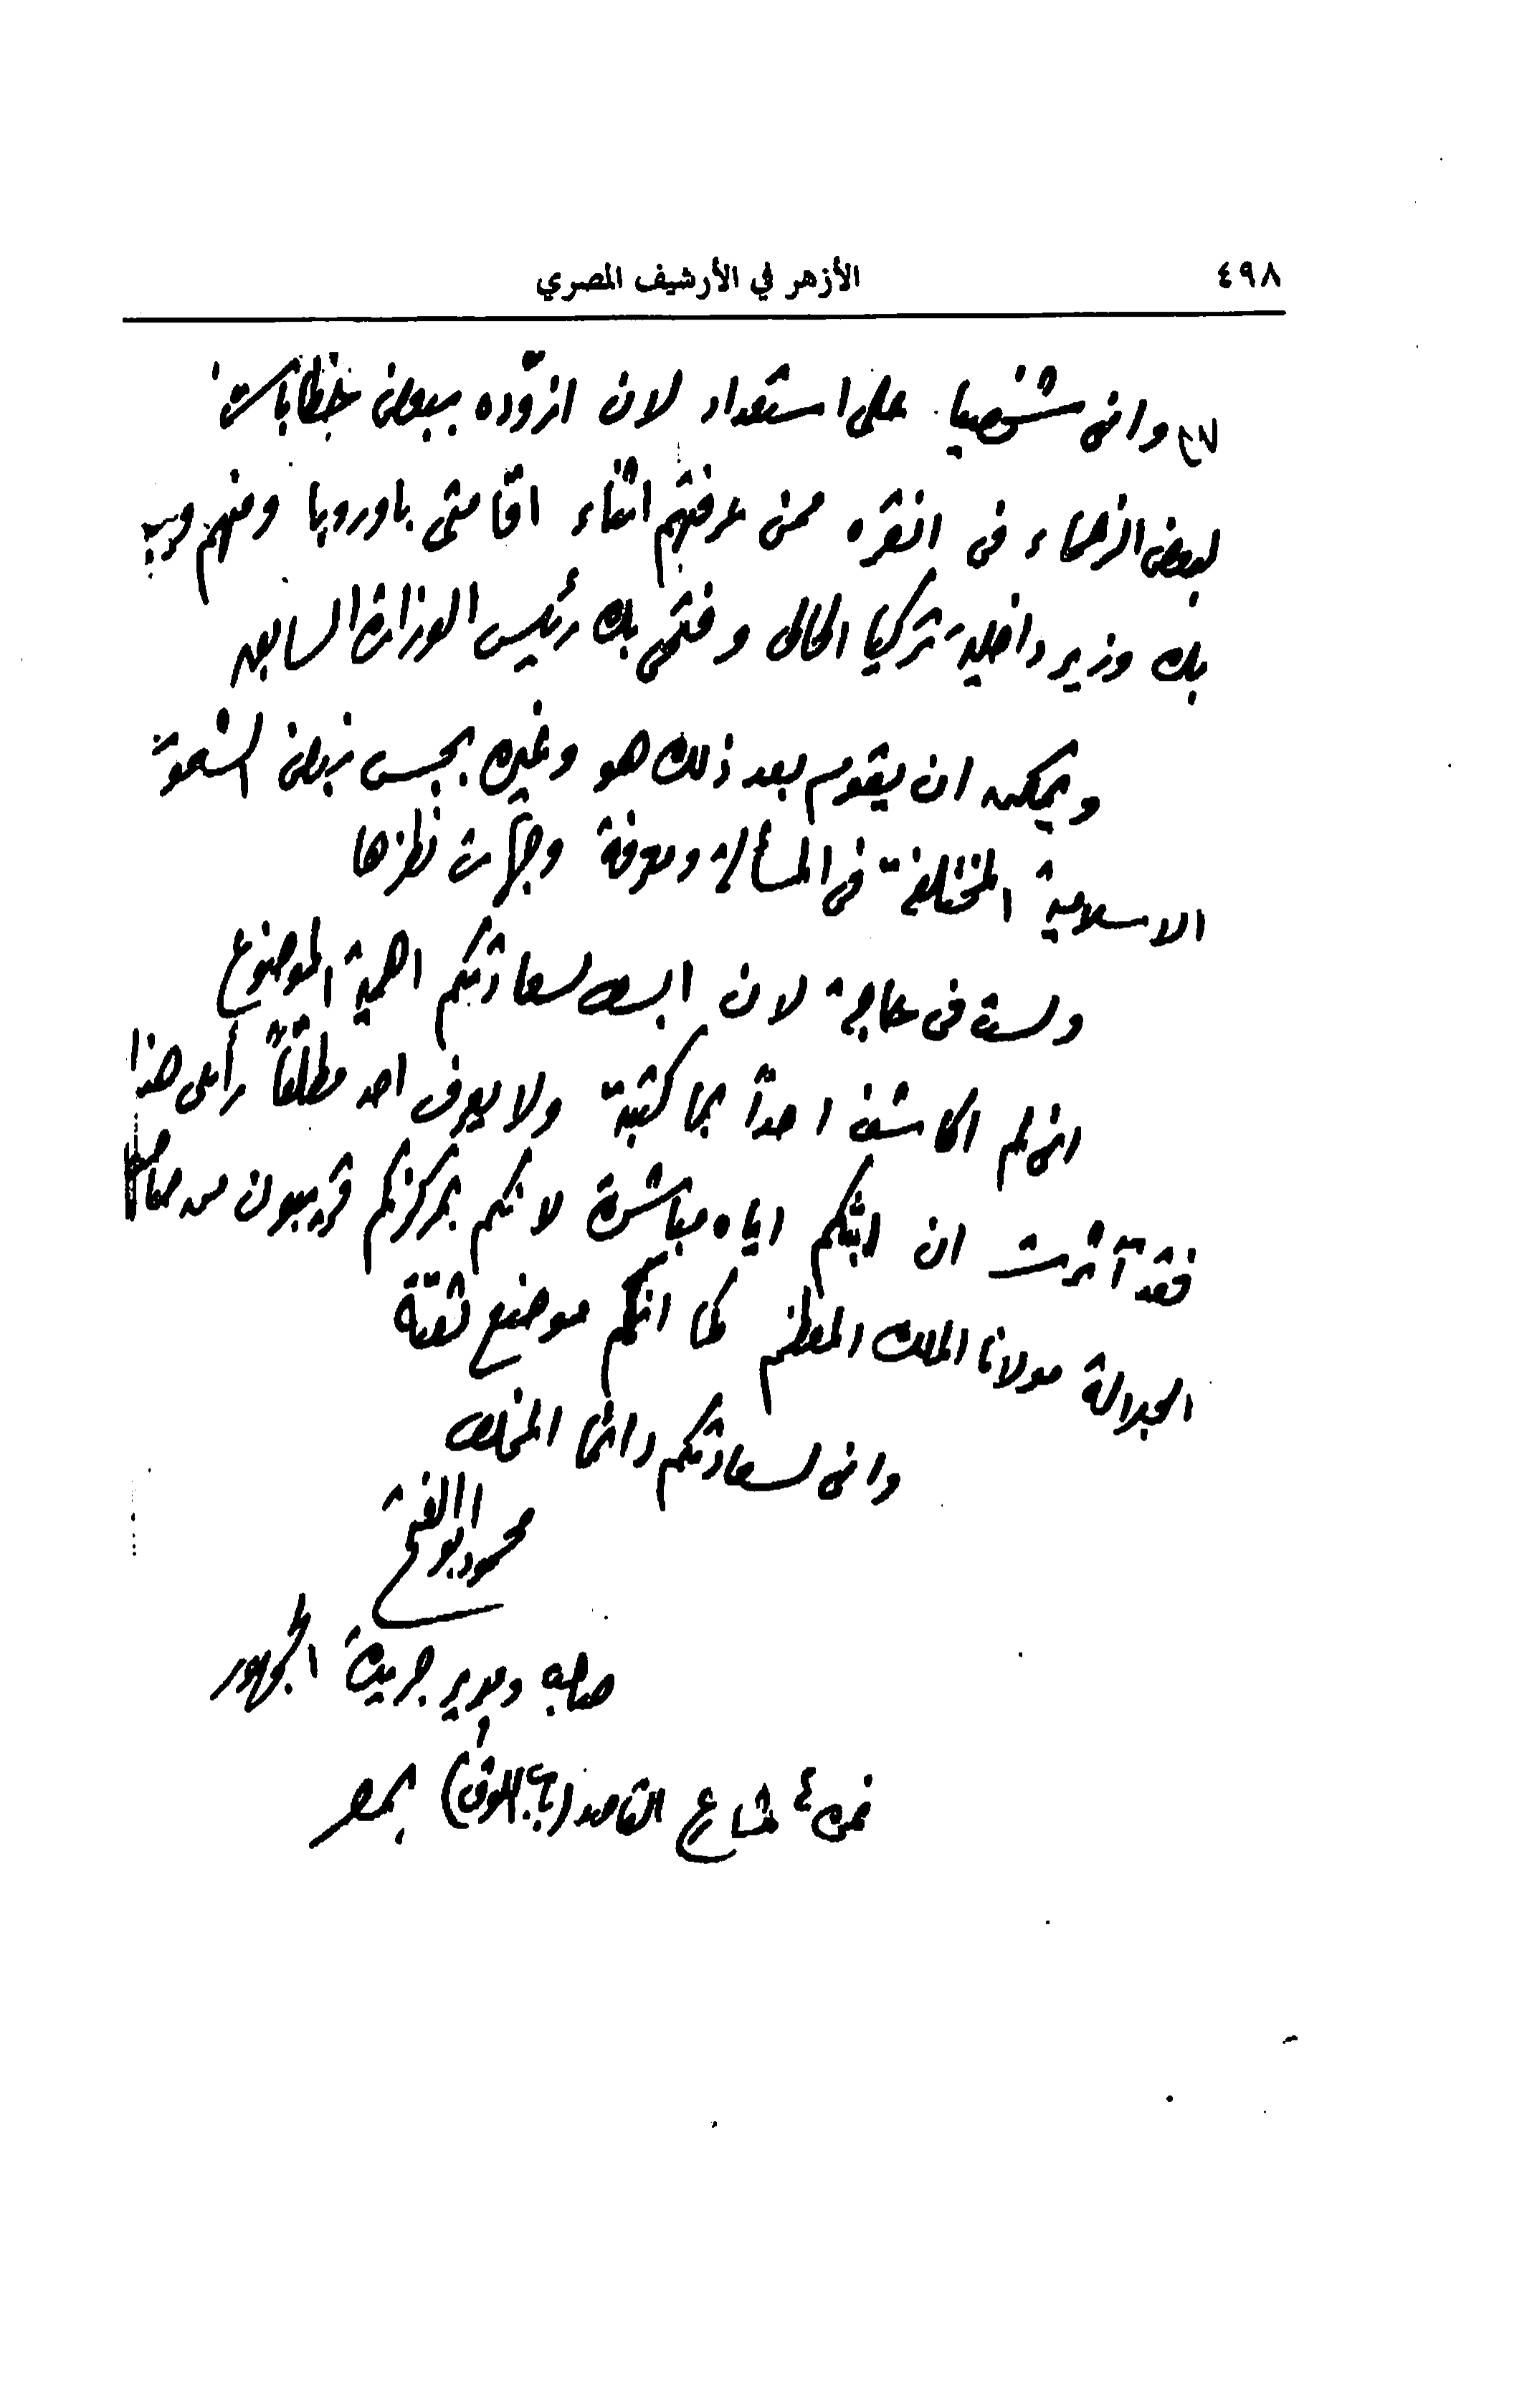 ٤٩٨
الأزهر في الأرشيف المصري
وانى شخصيا على استعداد لان ازوّده ببعض خطابات
لبعض الزعماء فى انقره ممن عرفتهم اثناء اقامتى باوروبا ومنهم
بك وزير داخلية تركيا الحالى وفتحى بك رئيس الوزارة السابق
ويمكن ان يقوم بعد ذلك هو وغيره بجس نبض الشعوب
الاسلامية المختلفة فى المسألة ومعرفة وجهات نظرها
ولست فى حاجة لان ابسط لسعادتكم اهمية الموضوع
انى لم اكاشف احداً بما كتبته ولا يعرف احد مطلقاً رأيى هذا
فقد آثرت ان ابثكم اياه مباشرة لانكم بمركزكم قريبون من صاحب
الجلالة مولانا الملك المعظم كما انكم موضع ثقته
وانى لسعادتكم دائما المخلص
محمود ابو الفتح
صاحب ومدير جريدة الجمهور
نمرة ٤ شارع القاصد (باب اللوق) بمصر